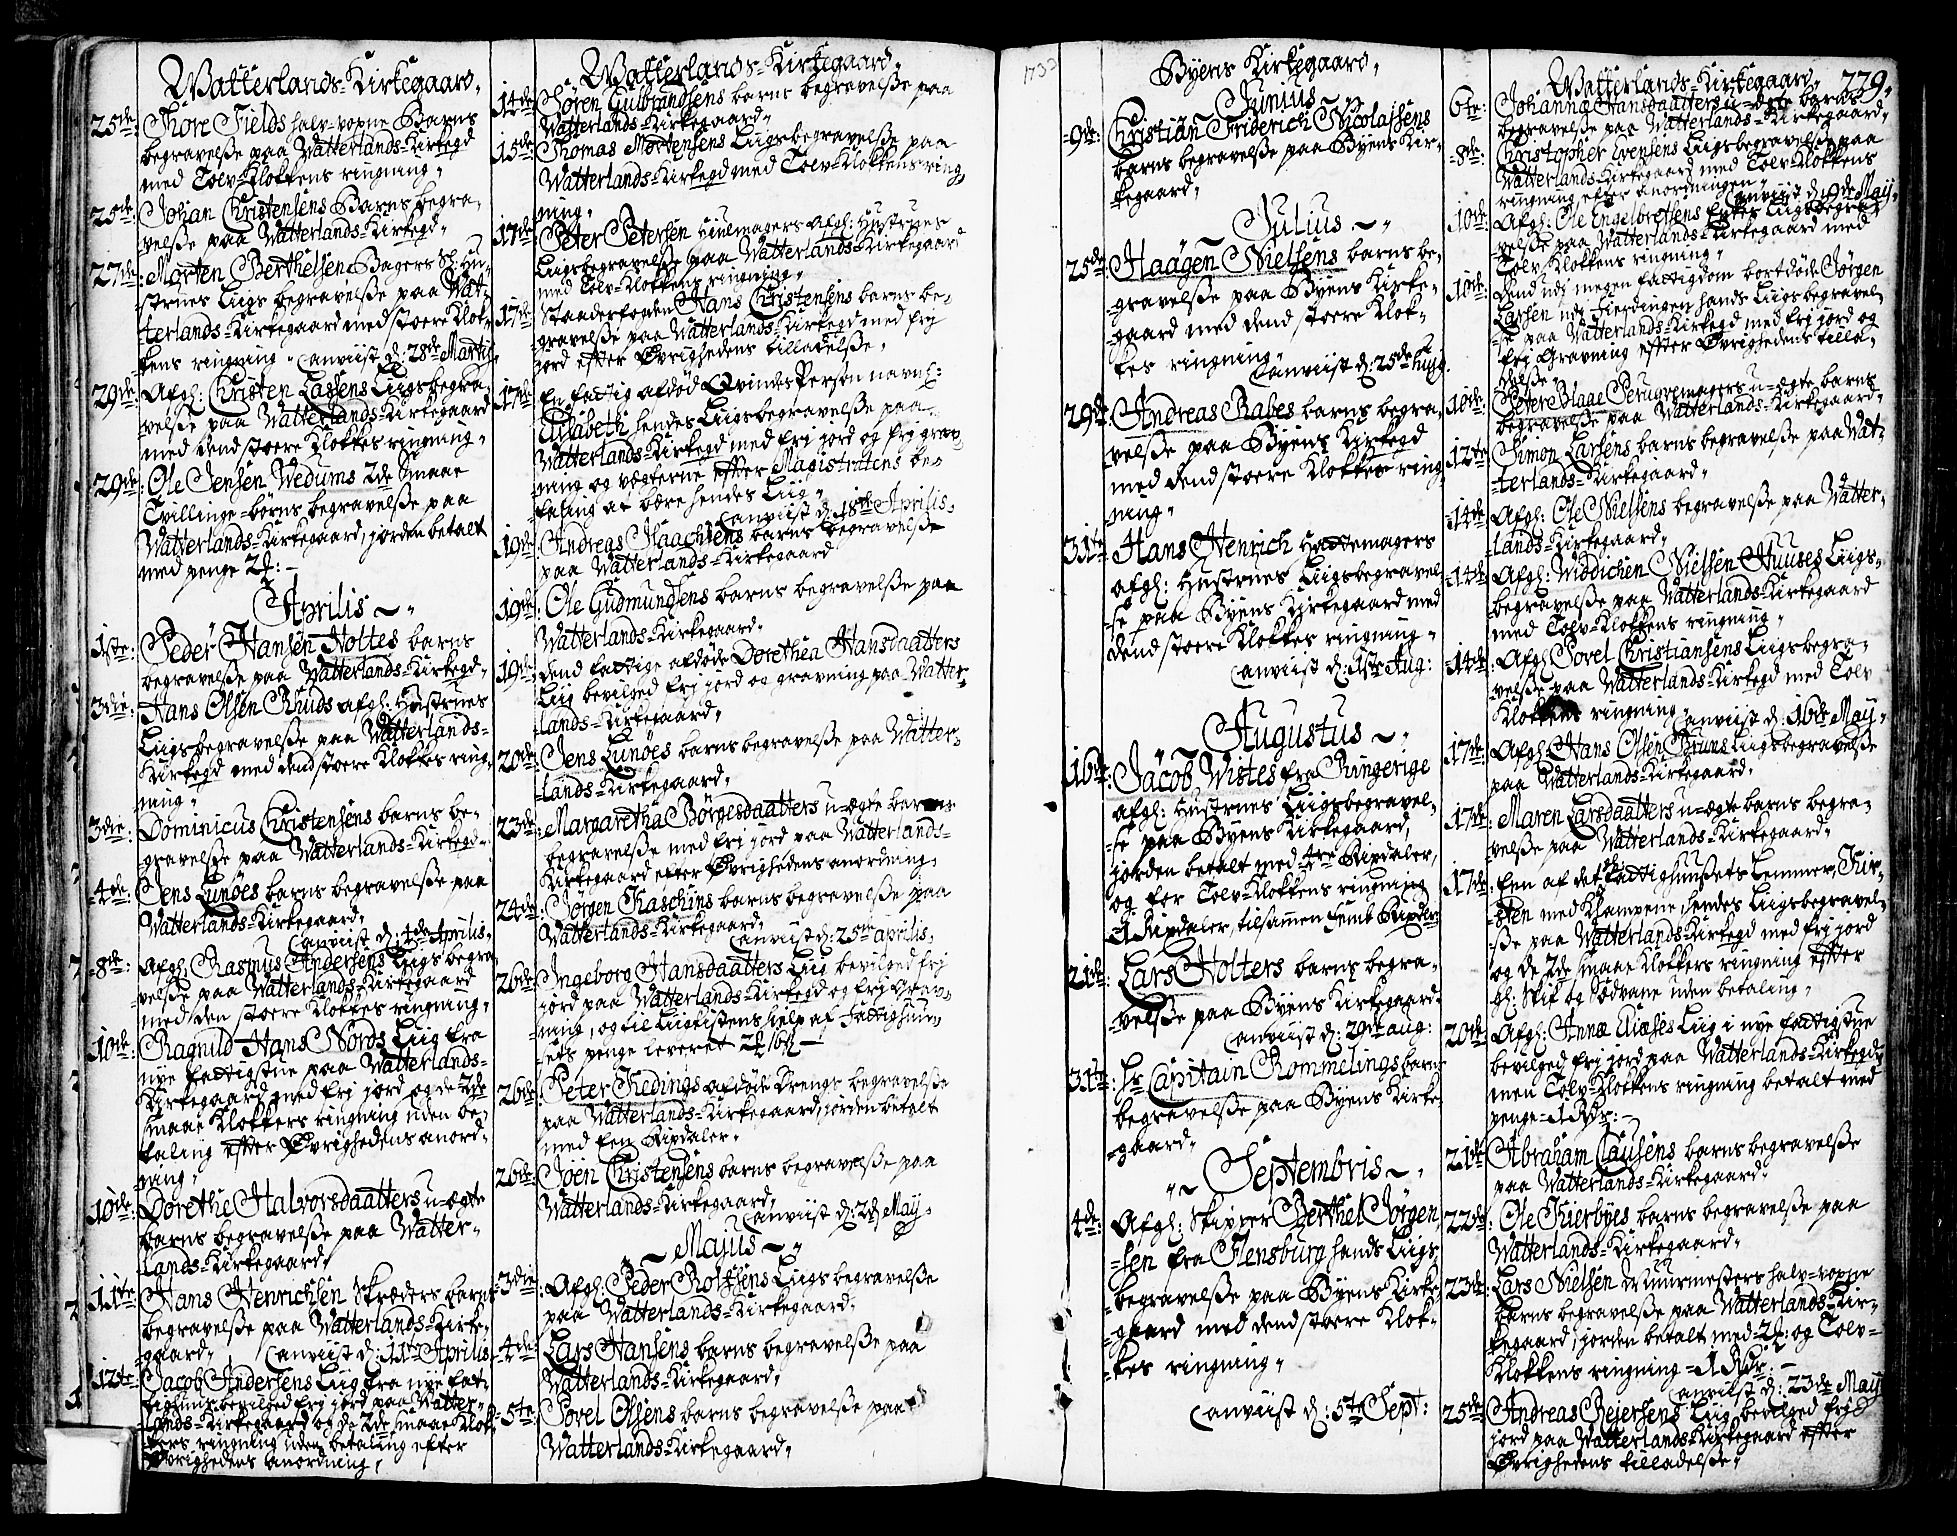 Watterlands-Kirkegaard,
25de: Thore Fields halv-voxne Barns
begravelße paa Watterlands-Kirkegd
med Tolv-Klokkens ringning,
25de: Johan Christensens Barns begra-
velße paa Watterlands-Kirkegd,
27de: Morten Berthelsen Bagers Sl: Hu-
strues Liigs begravelße paa Wat-
terlands-Kirkegaard med stoere Klok-
kens ringning, anviist d: 28de Martij
29de: Afgl: Christen Lassens Liigsbegra-
velße paa Watterlands-Kirkegaard
med dend stoere Klokkes ringning,
29de: Ole Jensen Wedums 2de Smaae
Tvillinge-börns begravelße paa
Watterlands-Kirkegaard, jorden betalt
med penge
Aprilis
1ste: Peder Hansen Holtes barns
begravelße paa Watterlands-Kirkegd,
3die: Hans Olsen Rhuds afgl: Hustrues
Liigsbegravelße paa Watterlands-
Kirkegd med dend stoere Klokkes ring-
ning,
3die: Dominicus Christensens barns be-
gravelße paa Watterlands-Kirkegd,
4de: Jens Lunöes barns begravelße paa
Watterlands-Kirkegaard,
anviist d: 4de Aprilis,
8de: Afgl: Rasmus Andersens Liigs begra-
velße paa Watterlands-Kirkegaard
med den stoere Klokkes ringning,
10de: Ragnild Hans Nords Liig fra
nye fattigstue paa Watterlands-
Kirkegaard med frj jord og de 2de
smaae Klokkers ringning uden be-
taling efter Övrighedens anord-
ning,
10de: Dorethe Halvorsdaatters u-ægte
barns begravelße paa Watter-
lands-Kirkegaard,
11te: Hans Henrichsen Skræders barns
begravelße paa Watterlands-Kirke-
gaard, anviist d: 11te Aprilis
12te: Jacob Andersens Liig fra nye fat-
tighuus bevilged frj jord paa Watter-
lands-Kirkegaard og de 2de smaae Klok-
kers ringning uden betaling efter
Övrighedens anordning,
Watterlands-Kirkegaard,
14de: Sören Gulbrandsens barns begravelße paa
Watterlands-Kirkegaard,
15de: Thomas Mortensens Liigsbegravelße paa
Watterlands-Kirkegd med Tolv-Klokkens ring-
ning,
17de: Peter Petersen Hiulmagers Afgl: Hustrues
Liigsbegravelße paa Watterlands-Kirkegaard
med Tolv-Klokkens ringning,
17de: Hans Christensens barns be-
gravelße paa Watterlands-Kirkegd med frj
jord efter Övrighedens tilladelße,
17de: En fattig afdöd Qvindes Person navnl:
Elisabeth hendes Liigsbegravelße paa
Watterlands-Kirkegd med frj jord og frj grav-
ning og vegterne efter Magistratens be-
faling at bære hendes Liig,
anviist d: 18de Aprilis,
19de: Andreas Haachiens barns begravelße
paa Watterlands-Kirkegaard
19de: Ole Gudmundsens barns begravelße paa
Watterlands-Kirkegaard,
19de: Dend fattige afdöde Dorethea Hansdaatters
Liig bevilged frj jord og gravning paa Watter-
lands-Kirkegaard,
20de: Jens Lunöes barns begravelße paa Watter-
lands-Kirkegaard,
23de: Margaretha Börgesdaatters u-ægte barns
begravelße med frj jord paa Watterlands-
Kirkegaard efter Övrighedens anordning,
24de: Jörgen Raschins barns begravelße paa
Watterlands-Kirkegaard,
anviist d: 25de aprilis,
26de: Ingeborg Hansdaatters Liig bevilged frj
jord paa Watterlands-Kirkegd og frj Grav-
ning, og til Liigkistens hielp af Fattighuu-
sets penge leveret
26de: Peter Kedings afdöde Drengs begravelße
paa Watterlands-Kirkegaard, jorden betalt
med Een Rixdaler,
26de: Joen Christensens barns begravelße paa
Watterlands-Kirkegaard,
anviist d: 2de May,
Majus
3die: Afgl: Peder Rolfsens Liigs begravelße
paa Watterlands-Kirkegaard,
4de: Lars Hansens barns begravelße paa
Watterlands-Kirkegaard,
5te: Povel Olsens barns begravelße paa
Watterlands-Kirkegaard,
1733
Byens Kirkegaard,
Junius
9de: Christian Friderich Nicolaisens
barns begravelße paa Byens Kir-
kegaard,
Julius
25de: Haagen Nielsens barns be-
gravelße paa Byens Kirke-
gaard med dend stoere Klok-
kes ringning,
anviist d: 25de hujg.
29de: Andreas Rabes barns begra-
velße paa Byens Kirkegd
med dend stoere Klokkes ring-
ning,
31te: Hans Henrich Hattemagers
afgl: Hustrues Liigsbegravel-
se paa Byens Kirkegaard med
dend stoere Klokkes ringning,
anviist d: 1ste Aug:
Augustus
16de: Jacob Wistes fra Ringerige
afgl: Hustrues Liigsbegravel-
se paa Byens Kirkegaard,
jorden betalt med 4re Rixdaler,
og for Tolv-Klokkens ringning
1 Rixdaler, tilsamen Femb Rixdlr
21de: Lars Holters barns begra-
velße paa Byens Kirkegaard,
anviist d: 29de aug:
31te: Hr Capitain Rommelings barns
begravelße paa Byens Kirke-
gaard,
Septembris
4de: Afgl: Skipper Berthel Jörgen-
sen fra Flensburg hands Liigs
begravelße paa Byens Kirke-
gaard med dend stoere Klok-
kes ringning,
anviist d: 5te Sept:
Watterlands-Kirkegaard, 229.
6te: Johanna Hansdaatters u-ægte barns
begravelße paa Watterlands-Kirkegaard,
8de: Christopher Evensens Liigsbegravelße paa
Watterlands-Kirkegaard med Tolv-Klokkens
ringning efter anordningen,
anviist d: 9de May,
10de: Afgl: Ole Engelbretsens Liigsbegra-
velße paa Watterlands-Kirkegaard med
Tolv-Klokkens ringning,
10de: Dend udj megen fattigdom bortdöde Jörgen
Larsen udj Fierdingen hands Liigsbegravel-
se paa Watterlands-Kirkegd med frj jord og
frj Gravning effter Övrighedens tilla-
delße,
10de: Peter Blaae Peruqvemagers u-ægte barns
begravelße paa Watterlands-Kirkegaard,
12te: Simon Larsens barns begravelße paa Wat-
terlands-Kirkegaard,
14de: Afgl: Ole Nielsens begravelße paa Watter-
lands-Kirkegaard,
14de: Afgl: Widdichen Nielsen Huuses Liigs-
begravelße paa Watterlands-Kirkegaard
med Tolv-Klokkens ringning,
14de: Afgl Povel Christiansens Liigsbegra-
velße paa Watterlands-Kirkegd med Tolv
Klokkens ringning, anviist d: 16de May,
17de: Afgl: Hans Olsen Bruns Liigsbegravelße
paa Watterlands-Kirkegaard,
17de: Maren Larsdaatters u-ægte barns begra-
velße paa Watterlands-Kirkegaard,
17de: Een af det Fattighuußets Lemmer, Kir-
sten med Krampene hendes Liigsbegravel-
ße paa Watterlands-Kirkegd med frj jord
og de 2de smaae Klokkers ringning effter
gl: Skik og Sædvane uden betaling,
20de: Afgl: Anne Liig i nye fattigstue
bevilged frj jord paa Watterlands-Kirkegd,
men Tolv-Klokkens ringning betalt med
penge 1 Rdr:
21de: Abraham Clausens barns begravelße
paa Watterlands-Kirkegaard,
22de: Ole Kierbyes barns begravelße paa
Watterlands-Kirkegaard,
23de: Lars Nielsen Muurmesters halv-voxne
barns begravelße paa Watterlands-Kir-
kegaard, jorden betalt med 2 og Tolv-
Klokkens ringning 1 Rdr:
anviist d: 23de May
25de: Andreas Rejersens Liig bevilged frj
jord paa Watterlands-Kirkegaard effter
Övrighedens tilladelße,